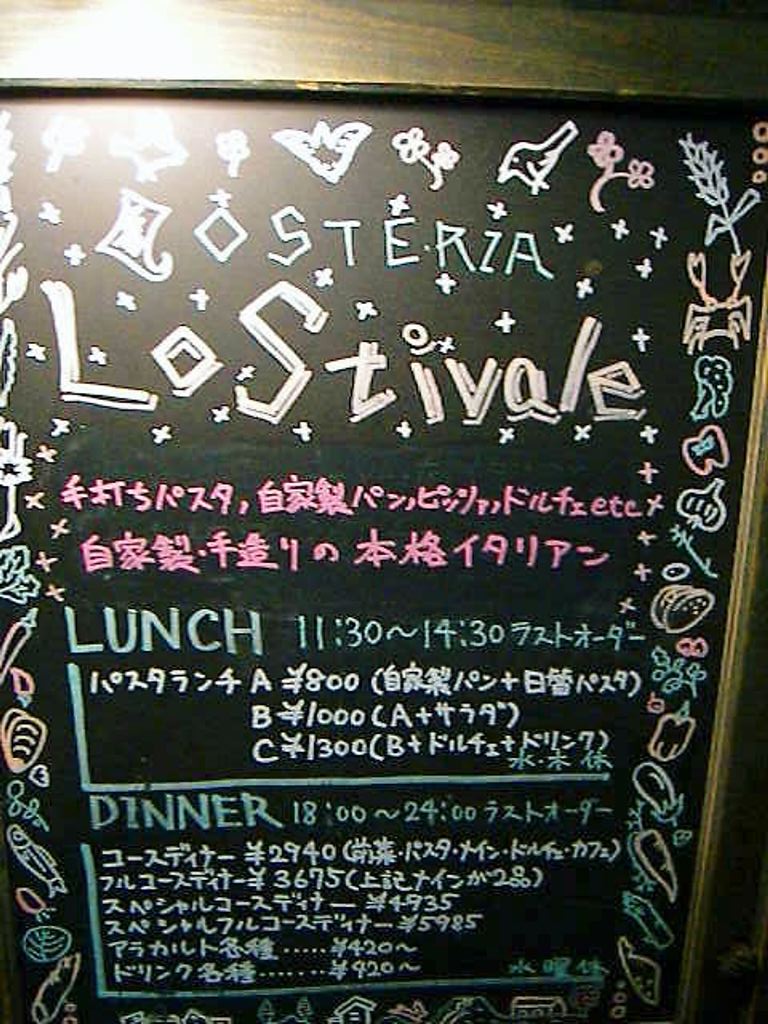 OSTERIA
Lo Stivale
手打ちパスタ,自家製パン,ピッツァ,ドルチェetc
自家製・手造りの本格イタリアン
LUNCH 11:30～14:30ラストオーダー
パスタランチ A ¥800 (自家製パン+日替パスタ)
B ¥1000 (A+サラダ)
C ¥1300 (B+ドルチェ+ドリンク)
水・木 休
DINNER 18:00～24:00ラストオーダー
コースディナー ¥2940 (前菜・パスタ・メイン・ドルチェ・カフェ)
フルコースディナー ¥3675 (上記メインが2品)
スペシャルコースディナー ¥4935
スペシャルフルコースディナー ¥5985
アラカルト各種 ..... ¥420～
ドリンク各種 ....... ¥420～ 水曜休